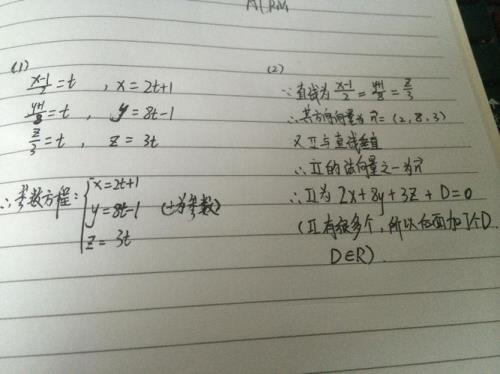 (1)
x-1/2=t , x=2t+1
y+1/8=t , y=8t-1
z/3=t , z=3t
∴参数方程:{x=2t+1
y=8t-1 (t为参数)
z=3t
(2)
∵直线为 x-1/2=y+1/8=z/3
∴其方向向量为 n=(2,8,3)
又π与直线垂直
∴π的法向量之一为n
∴π为 2x+8y+3z+D=0
(π有很多个,所以后面加了个D.
D∈R).